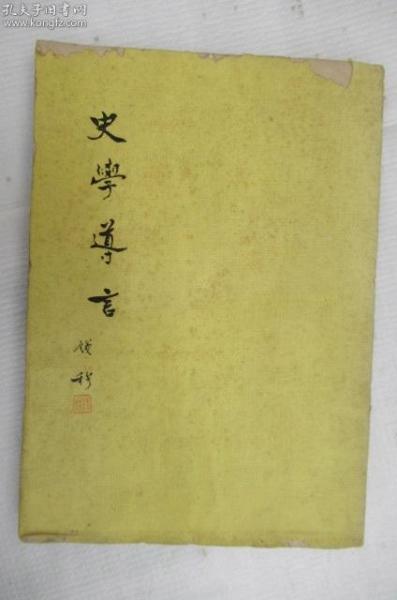 孔夫子旧书网
www.kongfz.com
史學導言
錢穆